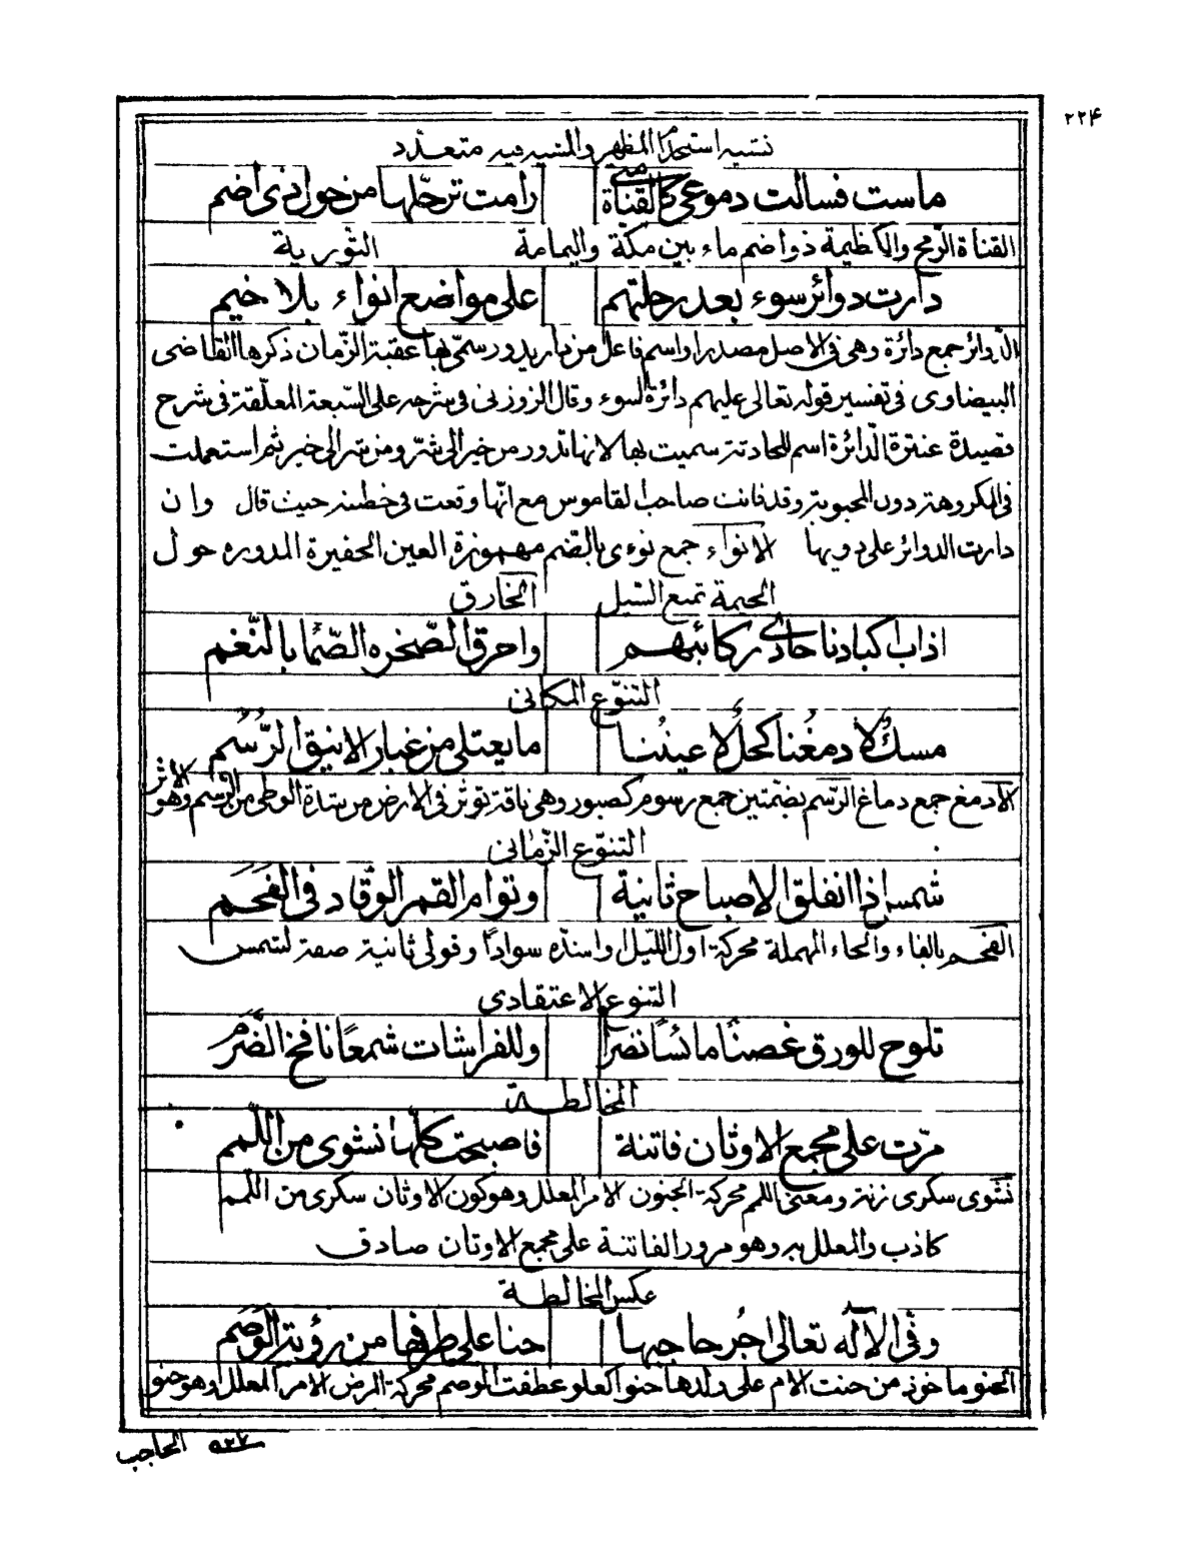 ۲۲۴
تشبيه استخدام المظهر والمشبه فيه متعدد
ماست فسالت دموعي كالقناة متى رامت ترحّلها من حول ذي اضم
القناة الرمح والكظيمة ذو اضم ماء بين مكّة واليمامة التورية
دارت دوائر سوء بعد رحلتهم على مواضع انواء بلا خيم
الدوائر جمع دائرة وهى فى الاصل مصدر او اسم فاعل من دار يدور سمّى بها عقبة الزّمان ذكرها القاضى
البيضاوى فى تفسير قوله تعالى عليهم دائرة السوء وقال الزوزنى فى شرحه على السّبعة المعلّقة فى شرح
قصيدة عنترة الدائرة اسم للحادثة سميت بها لانها تدور من خير الى شرّ ومن شر الى خير ثم استعملت
فى المكروهة دون المحبوبة وقد فاتت صاحب القاموس مع انّها وقعت فى خطبته حيث قال وان
دارت الدوائر على ذويها الانواء جمع نوءى بالضم مهموزة العين الحفيرة المدوره حول
الخيمة تمنع السّيل الخارق
اذاب اكبادنا حادى ركائبهم واحرق الصّخره الصّمّا بالنّغم
التنوّع المكانى
مسكٌ لادمغُنا كحلٌ لاعينُنا ما يعتلى من غبار الانيق الرُّسُم
الادمغ جمع دماغ الرّسم بضمّتين جمع رسوم كصبور وهى ناقة تؤثر فى الارض من شدة الوطى من الرّسم وهو الاثر
التنوّع الزّمانى
شمس اذا انفلق الاصباح ثانية وتوام القمر الوقّاد فى الفَحَم
الفحم بالفاء والحاء المهملة محركة اول اللّيل واشدّه سوادًا وقولى ثانية صفة لشمس
التنوع الاعتقادى
تلوح للورق غصنًا مائسًا نضرًا وللفراشات شمعًا نافخ الضَّرَم
المخالطة
مرّت على مجمع الاوثان فاتنة فاصبحت كلّها نشوى من اللّمم
نشوى سكرى زنة ومعنى اللمم محركة الجنون الامر المعلل وهو كون الاوثان سكرى من اللمم
كاذب والمعلل به وهو مرور الفاتنة على مجمع الاوثان صادق
عكس المخالطة
وقى الاله تعالى اجُر حاجبها حنا على طرفها من رؤية الوَصَم
الحنو ماخوذ من حنت الام على ولدها حنوا كعلو عطفت الوصم محركة المرض الامر المعلل وهو حنو
الحاجب